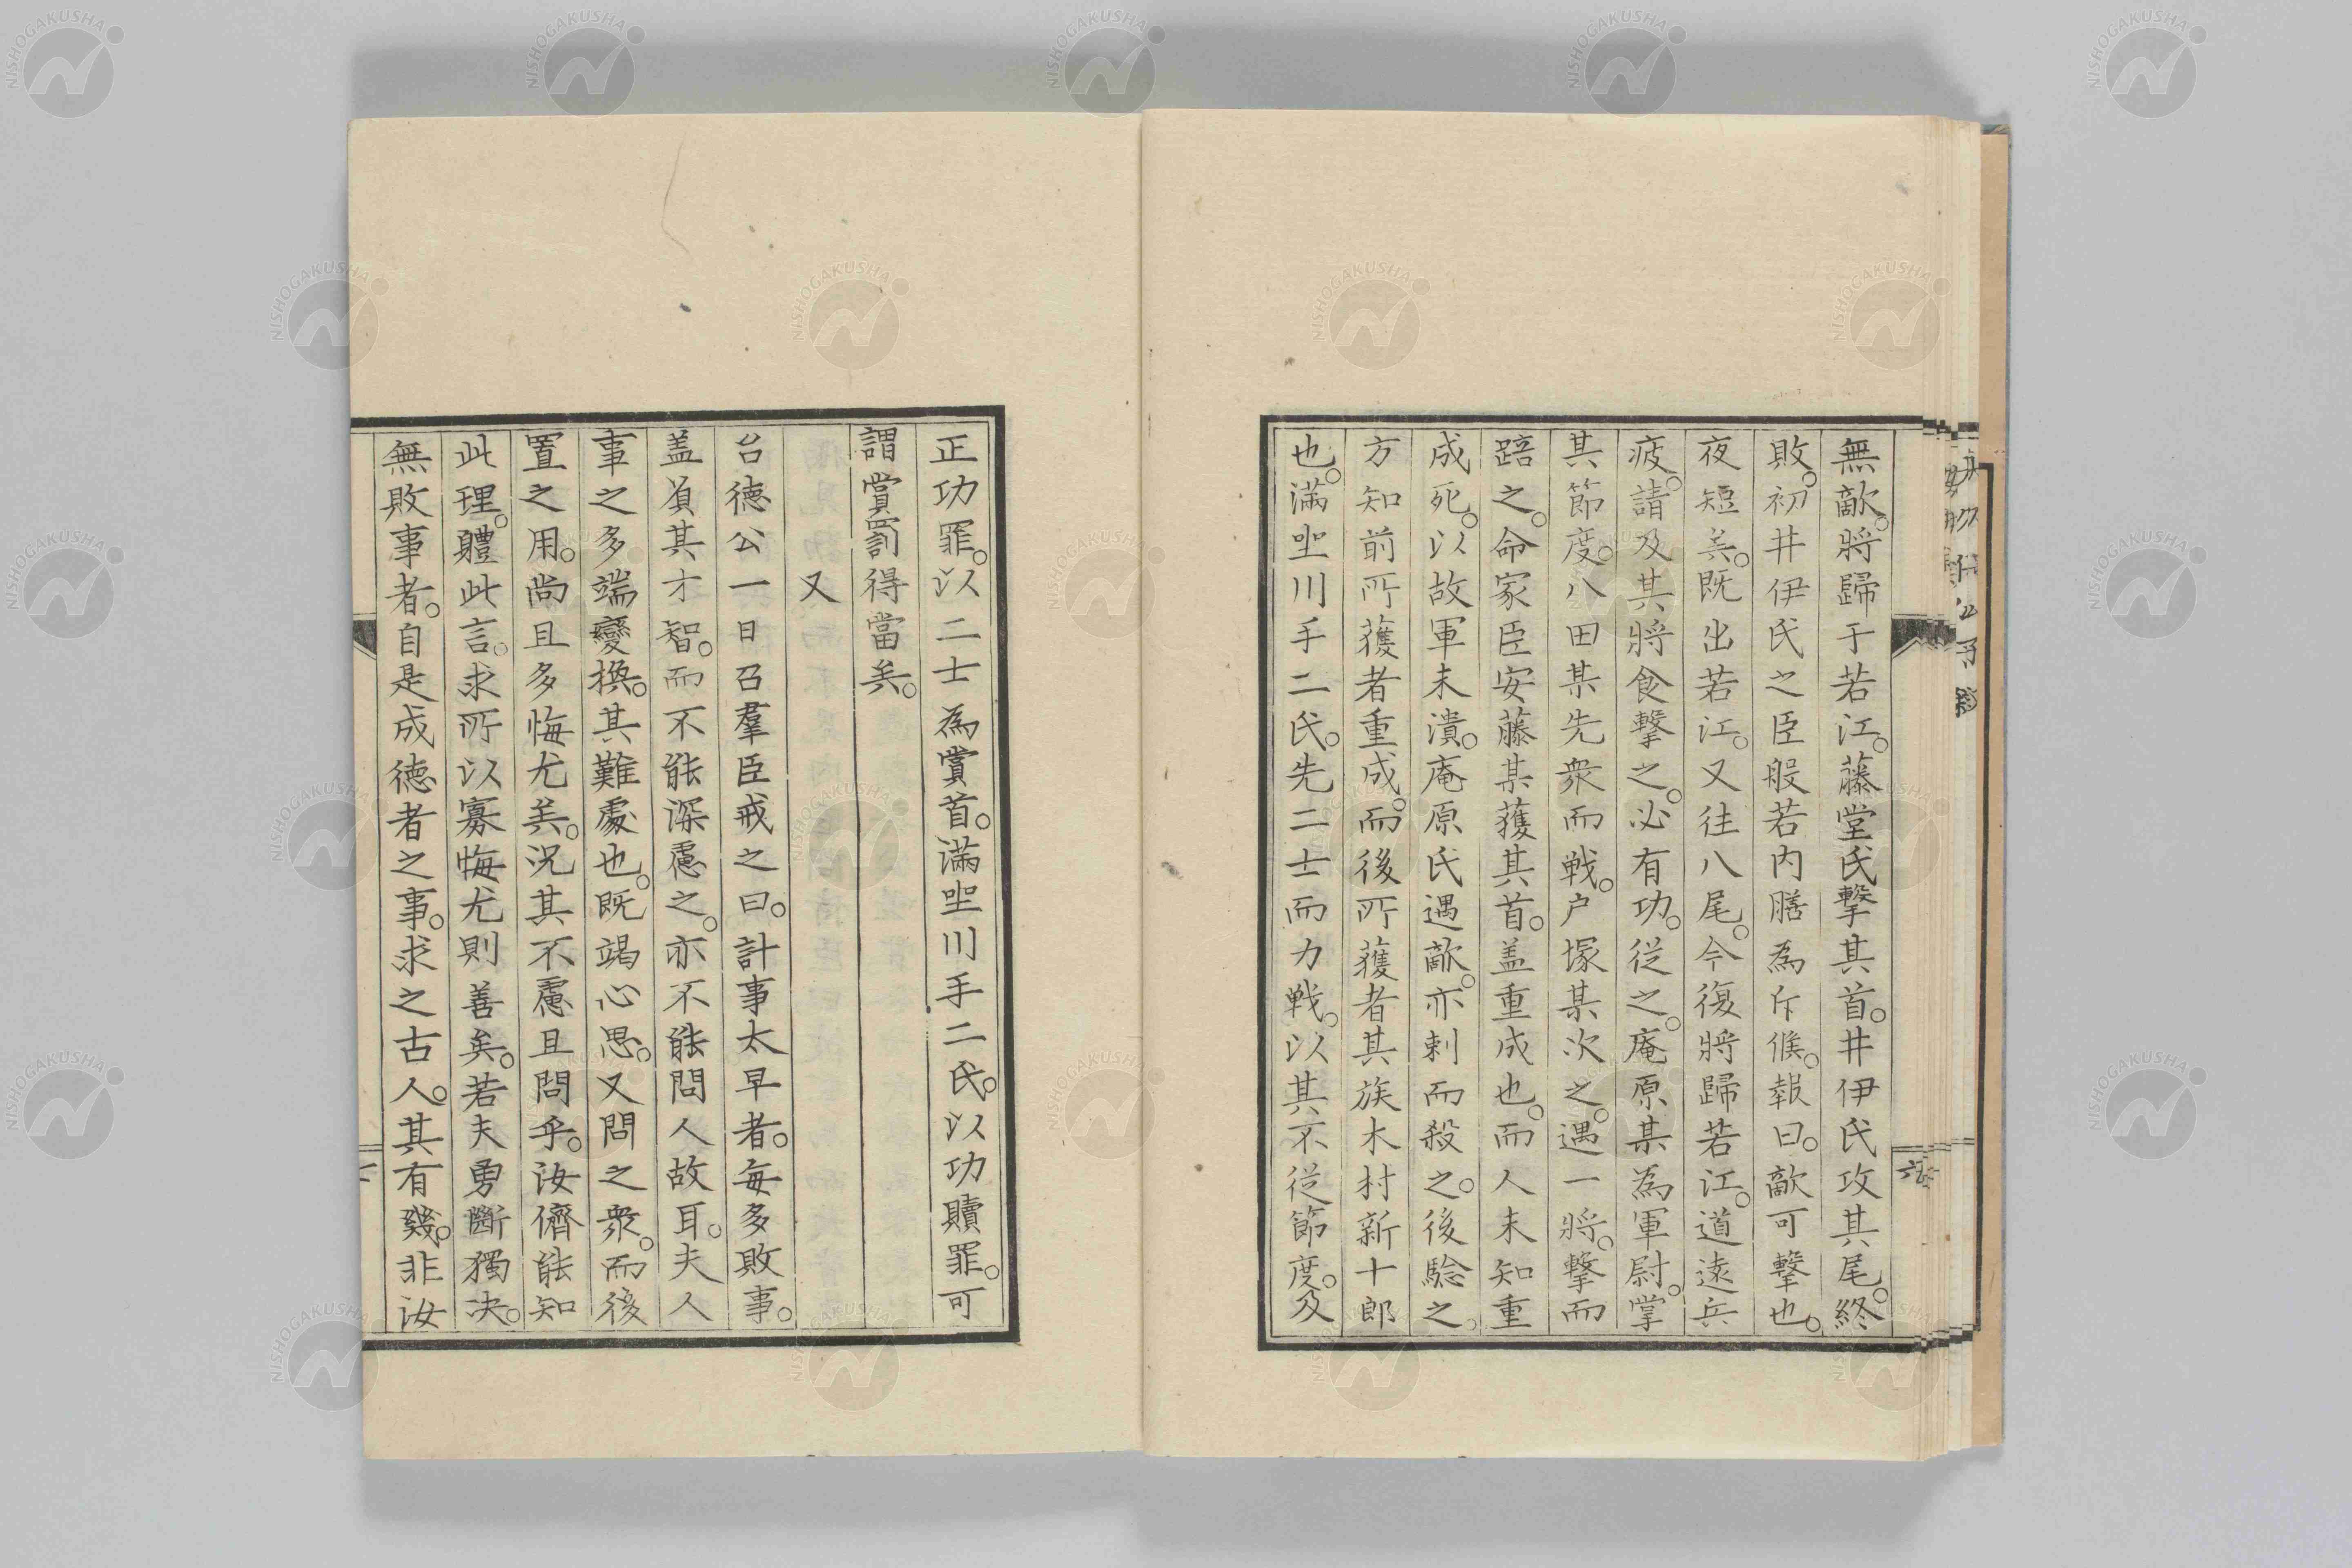 無敵。將歸于若江。藤堂氏擊其首。井伊氏攻其尾。終
敗。初井伊氏之臣般若内膳為斥候。報曰。敵可擊也。
夜短矣。既出若江。又往八尾。今復將歸若江。道遠兵
疲。請及其將食擊之。必有功。從之。庵原某為軍尉。掌
其節度。八田某先衆而戰。户塚某次之。遇一將。擊而
踣之。命家臣安藤某獲其首。盖重成也。而人未知重
成死。以故軍未潰。庵原氏遇敵。亦刺而殺之。後驗之。
方知前所獲者重成。而後所獲者其族木村新十郎
也。滿坐川手二氏。先二士而力戰。以其不從節度。及
六
正功罪。以二士為賞首。滿坐川手二氏。以功贖罪。可
謂賞罰得當矣。
又
台德公一日召羣臣戒之曰。計事太早者。每多敗事。
盖負其才智。而不能深慮之。亦不能問人故耳。夫人
事之多端變換。其難處也。既竭心思。又問之衆。而後
置之用。尚且多悔尤矣。况其不慮且問乎。汝儕能知
此理。體此言。求所以寡悔尤則善矣。若夫勇斷獨决。
無敗事者。自是成德者之事。求之古人。其有幾。非汝
NISHOGAKUSHA